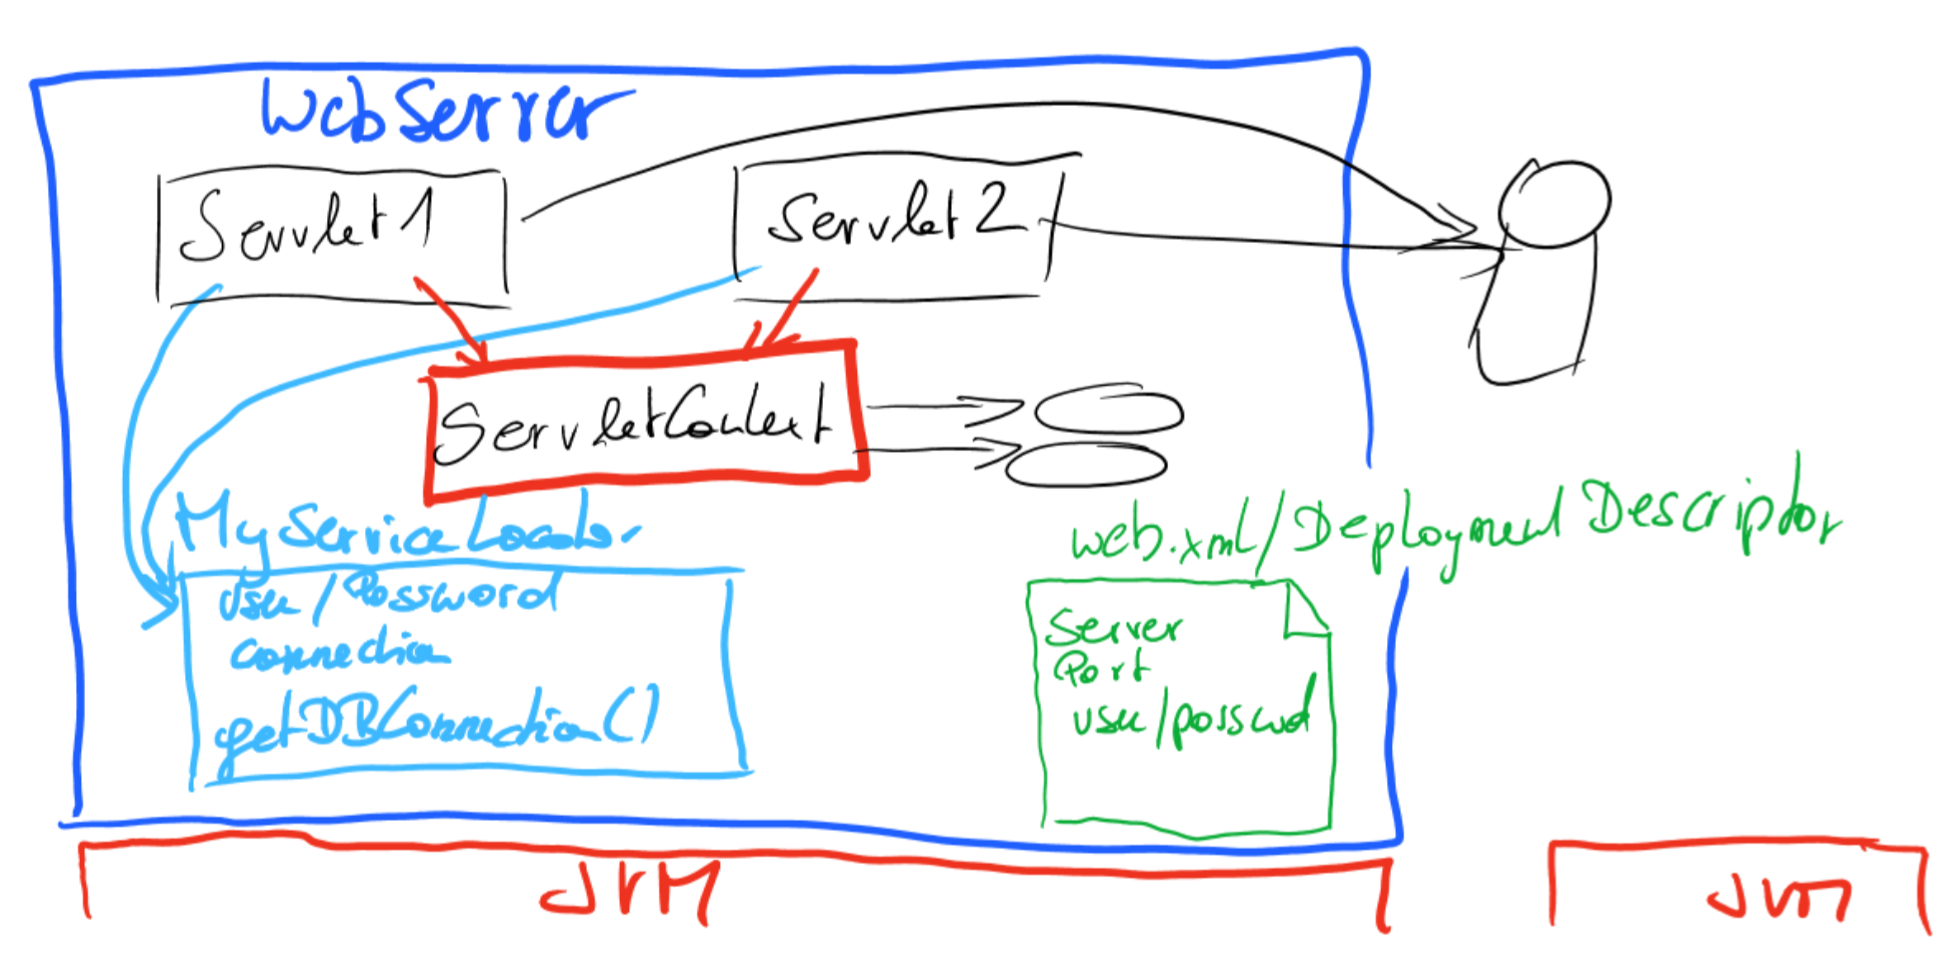 WebServer
Servlet1
Servlet2
ServletContext
MyServiceLocator
User/Password
connection
getDBConnection()
web.xml/Deployment Descriptor
Server
Port
user/passwd
JVM
JVM